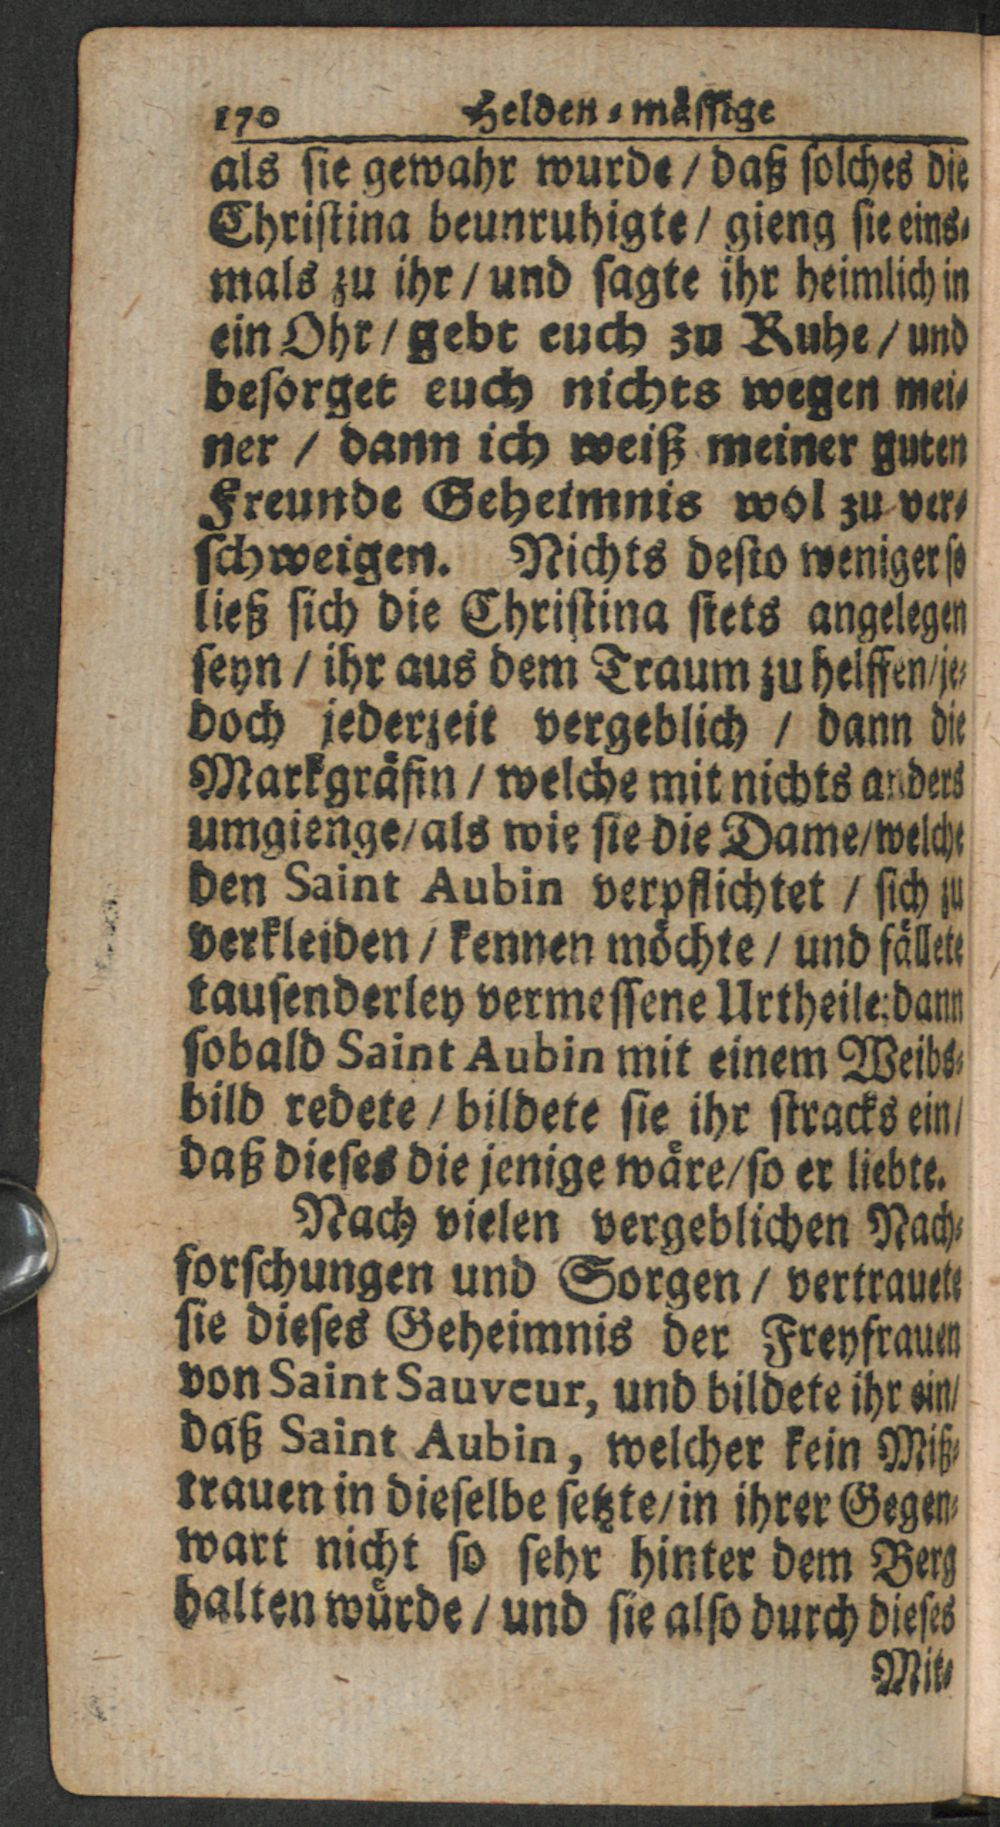 170 Helden-mässige
als sie gewahr wurde / daß solches die
Christina beunruhigte / gieng sie eins-
mals zu ihr / und sagte ihr heimlich in
ein Ohr / gebt euch zu Ruhe / und
besorget euch nichts wegen mei-
ner / dann ich weiß meiner guten
Freunde Geheimnis wol zu ver-
schweigen. Nichts desto weniger so
ließ sich die Christina stets angelegen
seyn / ihr aus dem Traum zu helffen / je-
doch jederzeit vergeblich / dann die
Markgräfin / welche mit nichts anders
umgienge / als wie sie die Dame / welche
den Saint Aubin verpflichtet / sich zu
verkleiden / kennen möchte / und fällete
tausenderley vermessene Urtheile: dann
sobald Saint Aubin mit einem Weibs-
bild redete / bildete sie ihr stracks ein /
daß dieses die jenige wäre / so er liebte.
Nach vielen vergeblichen Nach-
forschungen und Sorgen / vertrauete
sie dieses Geheimnis der Freyfrauen
von Saint Sauveur, und bildete ihr ein /
daß Saint Aubin, welcher kein Miß-
trauen in dieselbe setzte / in ihrer Gegen-
wart nicht so sehr hinter dem Berg
halten würde / und sie also durch dieses
Mit-